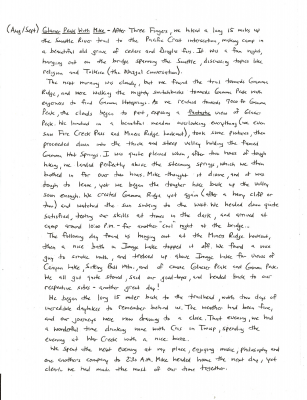 (Aug/Sept) Glacier Peak With Mike - After Three Fingers, we hiked a long 15 miles up
the Suiattle River trail to the Pacific Crest intersection, making camp in
a beautiful old grove of cedars and Douglas firs. It was a fun night,
hanging out on the bridge spanning the Suiattle, discussing topics like
religion and Tolkien (the conversation).
The next morning was cloudy, but we found the trail towards Gamma
Ridge, and were walking the mighty switchbacks towards Gamma Peak with
eagerness to find Gamma Hotsprings. As we reached towards 7000 to Gamma
Peak, the clouds began to part, exposing a fantastic view of Glacier
Peak. We lunched in a beautiful meadow overlooking everything (we even
saw Fire Creek Pass and Mica Ridge lookout), took some pictures, then
proceeded down into the thick and steep valley holding the famed
Gamma Hot Springs. I was quite pleased when, after two hours of tough
hiking, we landed perfectly above the steaming springs, which we then
bathed in for over two hours. Mike thought it divine, and it was
tough to leave, yet we began the tougher hike back up the valley
soon enough. We crested Gamma Ridge yet again (after a tiring climb or
two) and watched the sun sinking to the west. We headed down quite
satisfied, testing our skills at times in the dark, and arrived at
camp around 10:00 P.M. - for another cool night at the bridge...
The following day found us hanging out at the Miners Ridge lookout,
then a nice bath in Image Lake topped it off. We found a nice
guy to smoke with, and trekked up above Image Lake for views of
Canyon Lake, Sitting Bull Mtn., and of course Glacier Peak and Gamma Peak.
We all got quite stoned, said our good-byes, and headed back to our
respective sites - another great day!
We began the long 15 miler back to the trailhead, with two days of
incredible daylakes to remember behind us. The weather had been fine,
and our journeys were now drawing to a close. That evening, we had
a wonderful time drinking wine with Cris in, spending the
evening at his Creek with a nice bake.
We spent the next evening at my place, enjoying music, philosophy and
one anothers company to Zilo A.M. Mike headed home the next day, yet
clearly we had made the most of our time together.